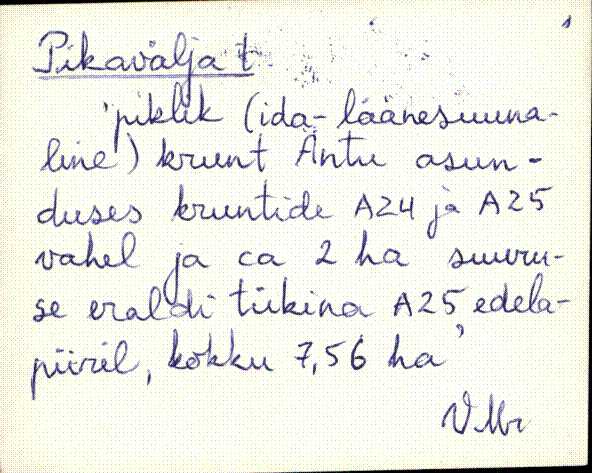 1
Pikavälja t
'piklik (ida-läänesuuna-
line) krunt Äntu asun-
duses kruntide A24 ja A25
vahel ja ca 2 ha suuru-
se eraldi tükina A25 edela-
piiril, kokku 7,56 ha'